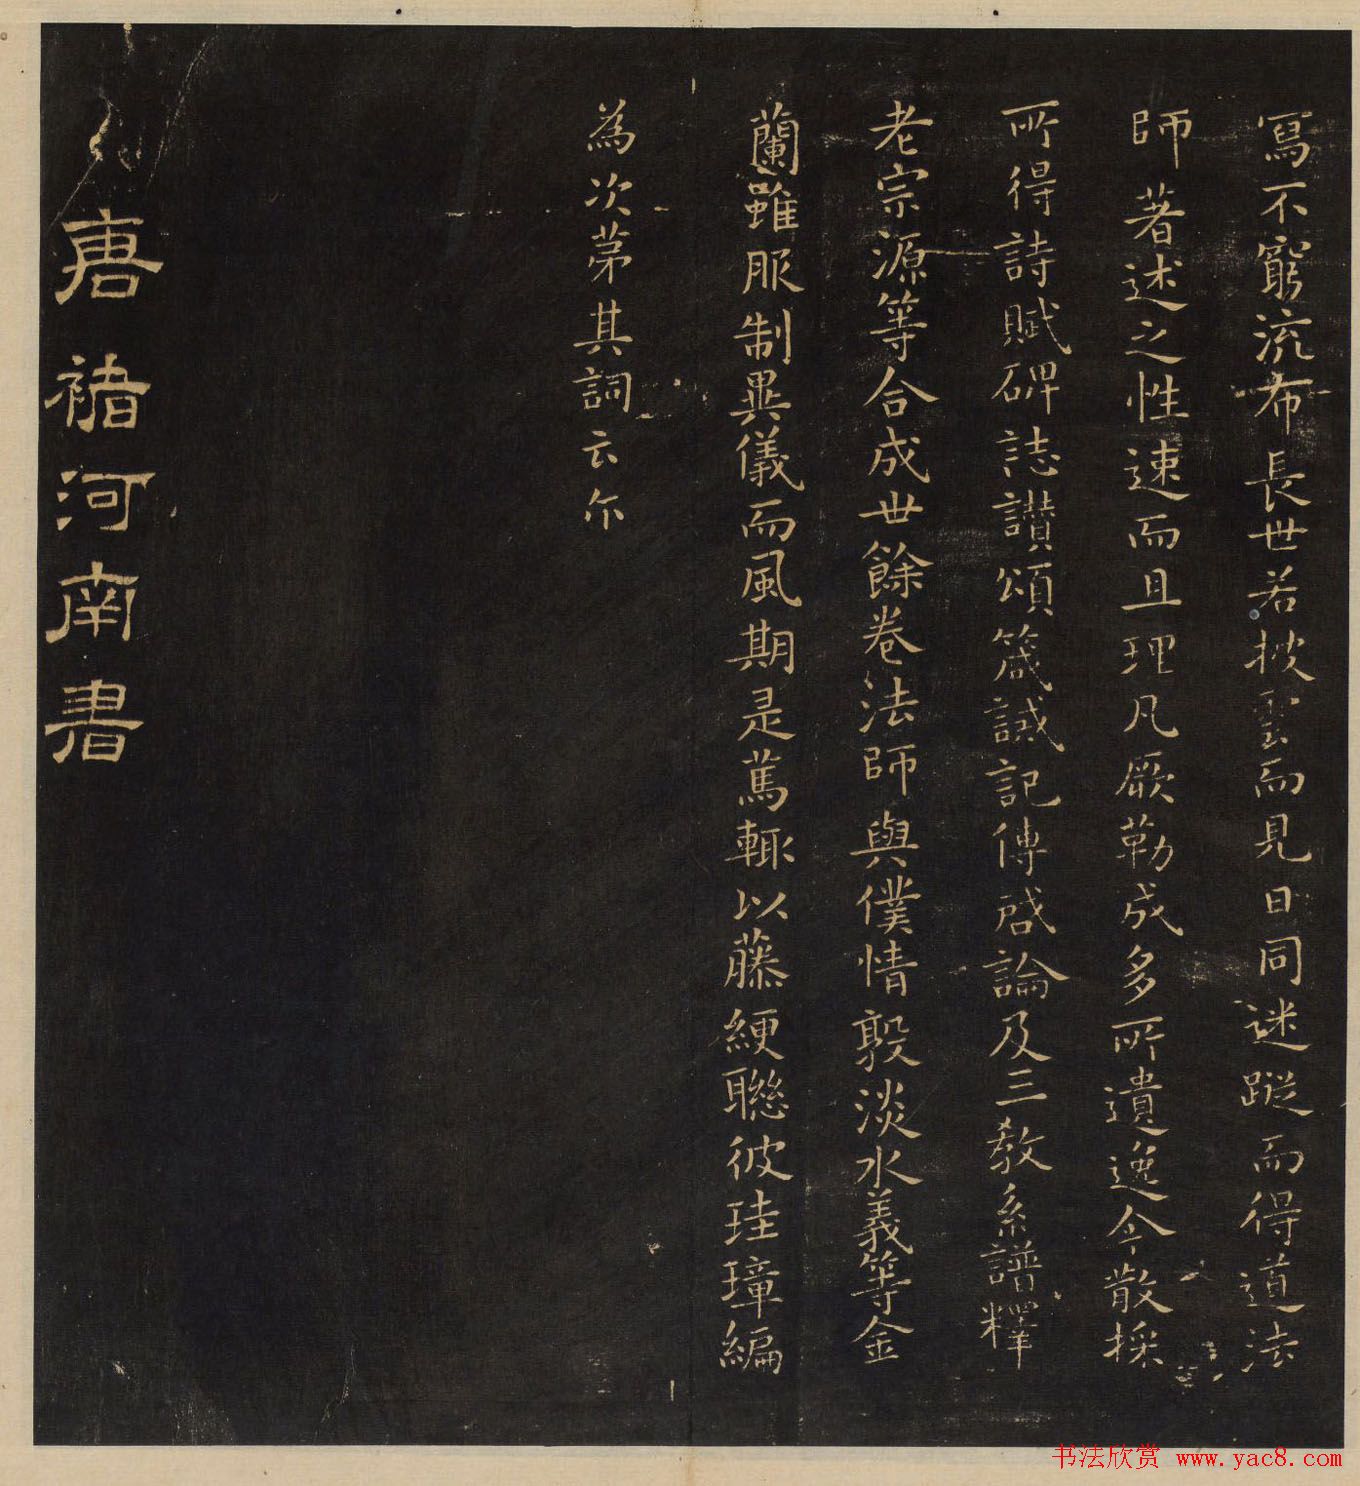 寫不窮流布長世若披雲而見日同迷蹤而得道法
師著述之性速而且理凡厥勒成多所遺逸今散採
所得詩賦碑誌讚頌箴誡記傳啓論及三教系譜釋
老宗源等合成世餘卷法師與僕情敦淡水義等金
蘭雖服制異儀而風期是篤輒以藤綆聯彼珪璋編
為次第其詞云尔
唐褚河南書
书法欣赏 www.yac8.com